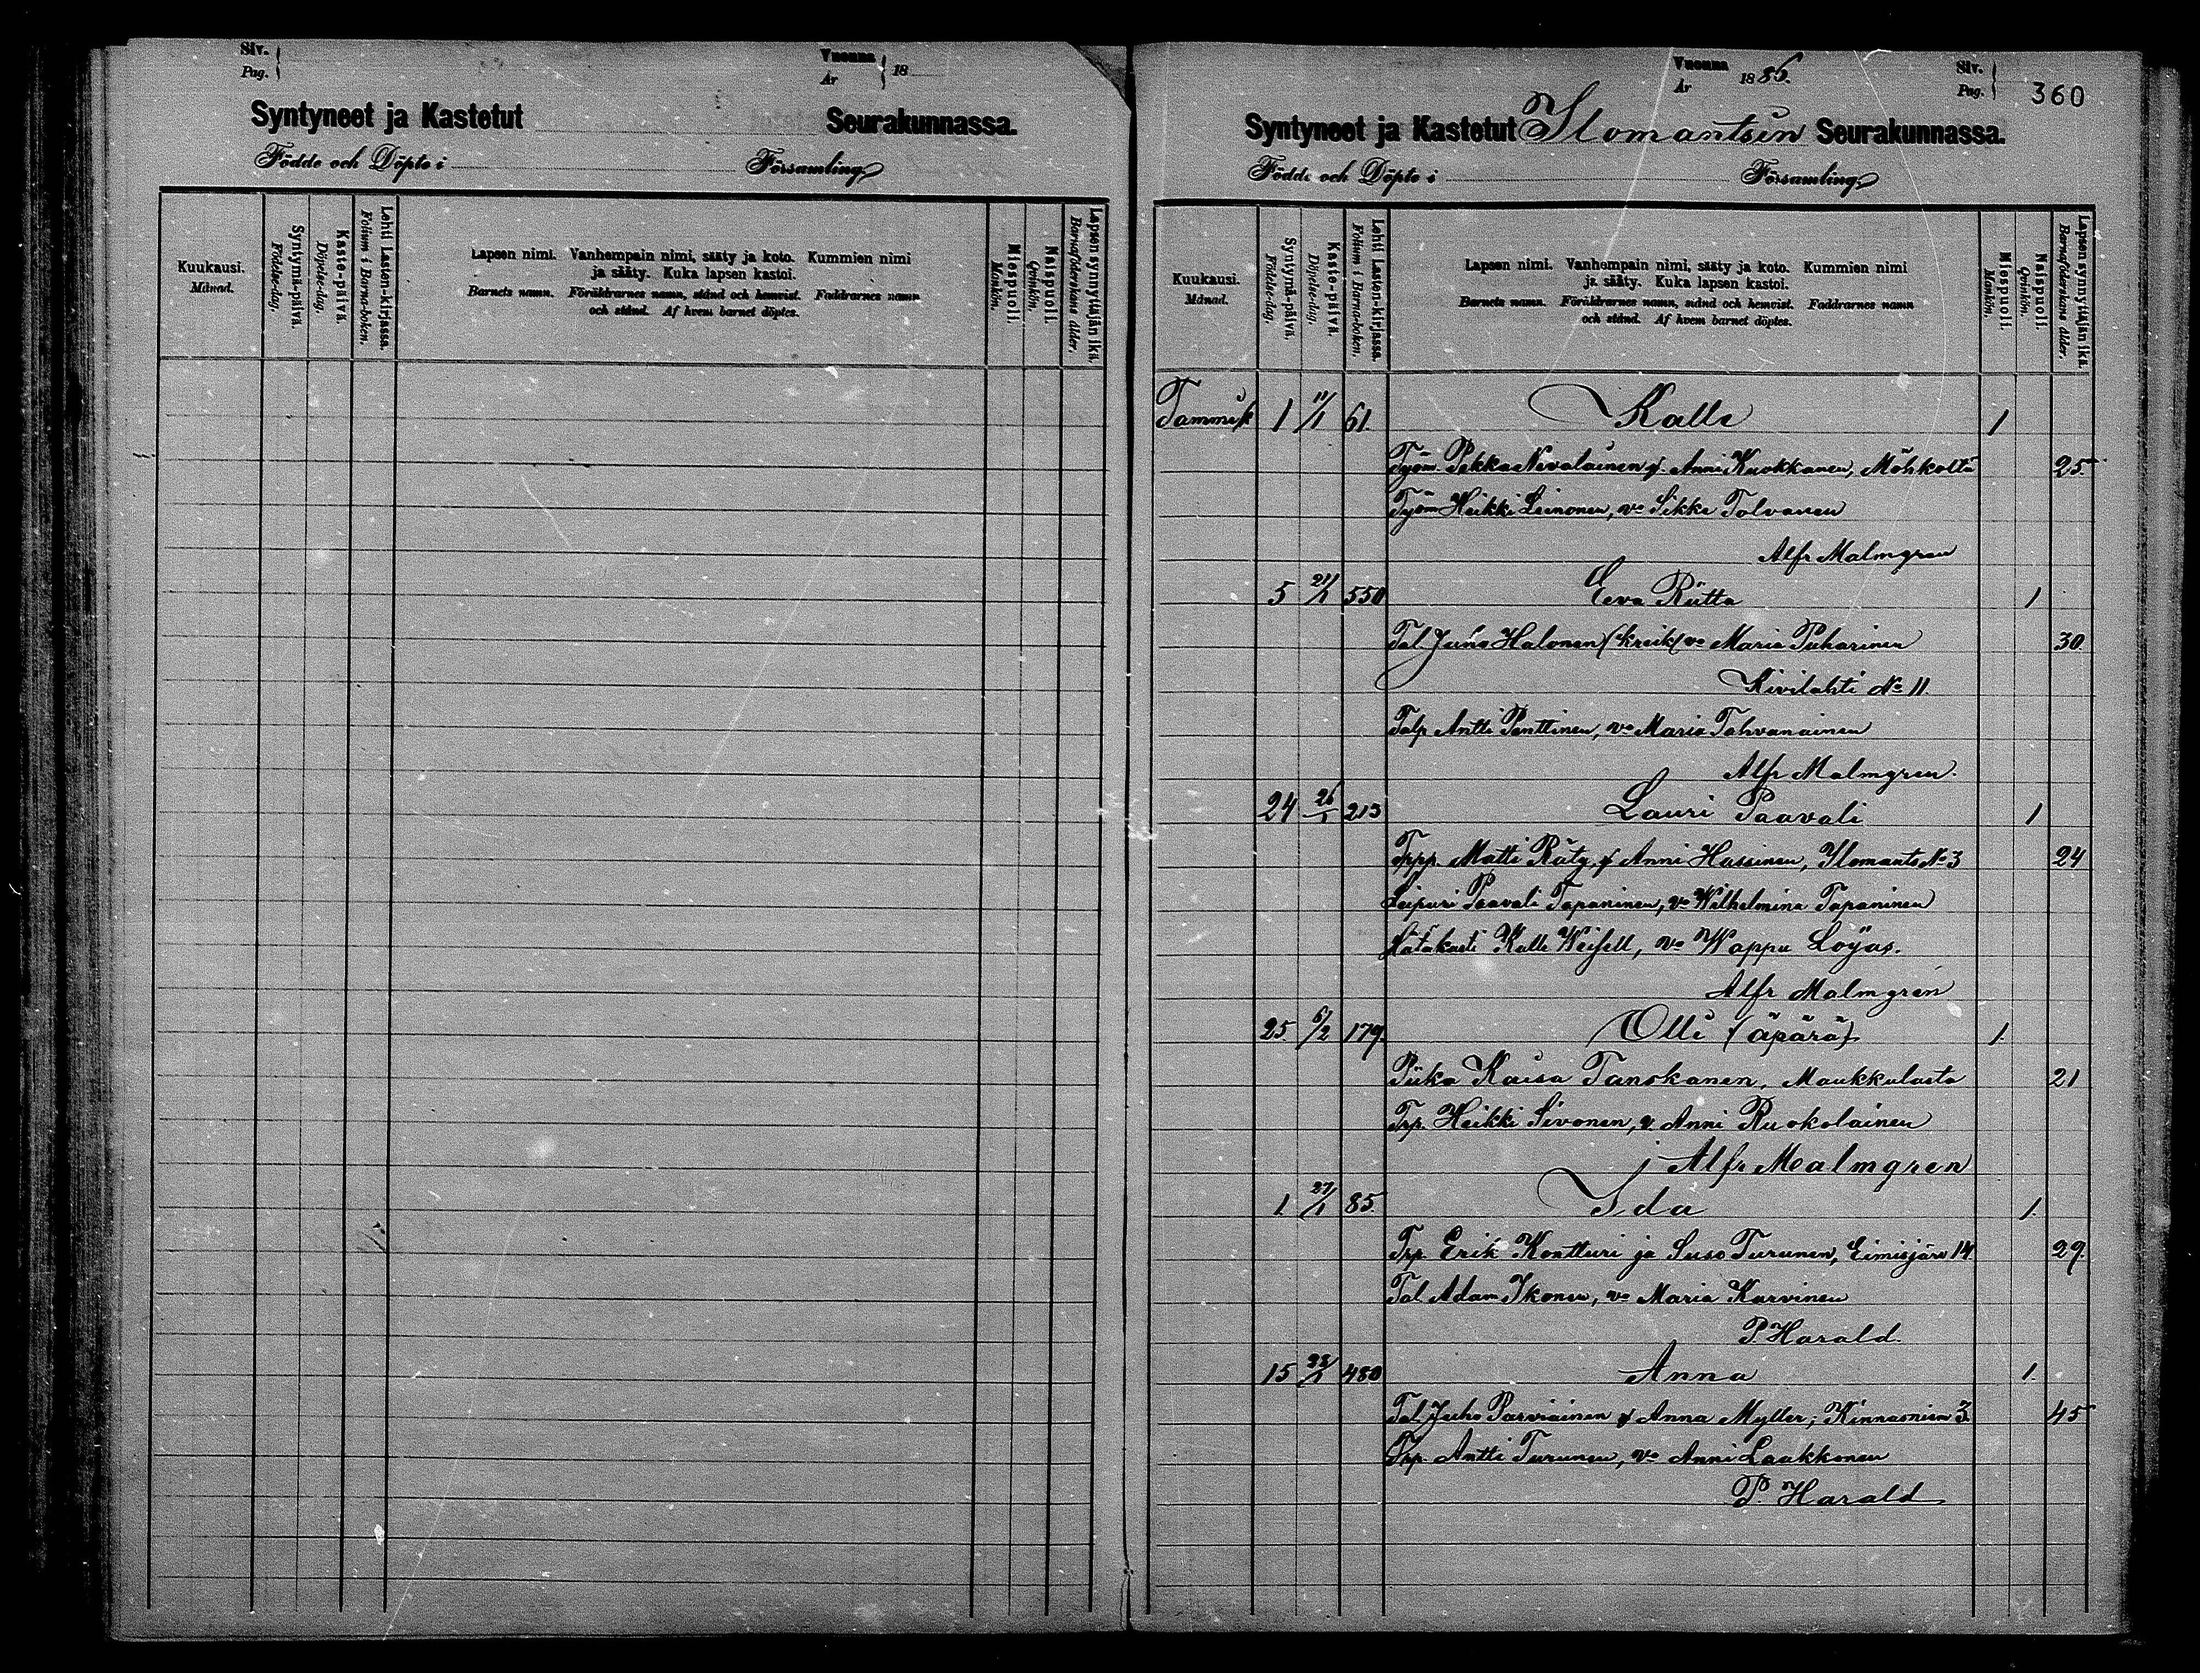 Siv.
Pag.
Vuonna
År
18
Syntyneet ja Kastetut Seurakunnassa.
Födde och Döpte i Församling
Kuukausi.
Månad.
Syntymä-päivä.
Födelse-dag.
Kaste-päivä.
Döpelse-dag.
Lehti Lasten-kirjassa.
Folium i Barna-boken.
Lapsen nimi. Vanhempain nimi, sääty ja koto. Kummien nimi
ja sääty. Kuka lapsen kastoi.
Barnets namn. Föräldrarnes namn, stånd och hemvist. Faddrarnes namn
och stånd. Af hvem barnet döptes.
Miespuoli.
Mankön.
Naispuoli.
Qvinkön.
Lapsen synnyttäjän ikä.
Barnaföderskans ålder.
Vuonna
År
1886.
Siv.
Pag.
360
Syntyneet ja Kastetut Ilomantsin Seurakunnassa.
Födde och Döpte i Församling
Kuukausi.
Månad.
Syntymä-päivä.
Födelse-dag.
Kaste-päivä.
Döpelse-dag.
Lehti Lasten-kirjassa.
Folium i Barna-boken.
Lapsen nimi. Vanhempain nimi, sääty ja koto. Kummien nimi
ja sääty. Kuka lapsen kastoi.
Barnets namn. Föräldrarnes namn, stånd och hemvist. Faddrarnes namn
och stånd. Af hvem barnet döptes.
Miespuoli.
Mankön.
Naispuoli.
Qvinkön.
Lapsen synnyttäjän ikä.
Barnaföderskans ålder.
Tammik 1 11/1 61. Kalle 1
Työm Pekka Nevalainen j. Anni Kuokkanen, Möhkoltä 25
Työm Heikki Leinonen, vo Sikke Tolvanen
Alfr Malmgren
5 21/1 550 Eeva Riitta 1
Tal Juho Halonen (kreik) vo Maria Puharinen 30
Kivilahti No 11.
Talp Antti Penttinen, vo Maria Tahvanainen
Alfr Malmgren.
24 26/1 213 Lauri Paavali 1
Tppp. Matti Räty, j Anni Hassinen, Ilomants No 3 24
Leipuri Paavali Tapaninen, vo Wilhelmina Tapaninen
Kalle vo Wappu Löyas.
Alfr Malmgren
25. 6/2 179. Olli (äpärä) 1.
Piika Kaisa Tanskanen, Maukkulasta 21
Trp. Heikki Sivonen, v. Anni Ruokolainen
Alfr Malmgren
1. 27/1 85. Ida 1.
Trp Erik Kontturi ja Suso Turunen, Eimisjärvi 14. 29.
Tal Adam Ikonen, vo Maria Karvinen
P. Harald.
15 28/1 480 Anna 1.
Tal Juho Parviainen j Anna Myller, Kinnasniem 3. 45
Trp. Antti Turunen, vo Anni Laakkonen
P. Harald